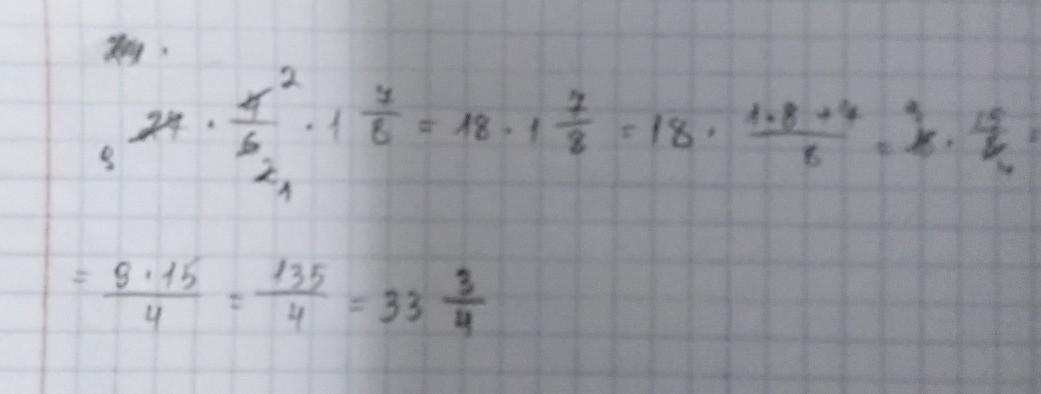 9 27 · 4/6 2 2 1 · 1 7/8 = 18 · 1 7/8 = 18 · (1·8+7)/8 = 9 18 · 15/8 4 =
= (9·15)/4 = 135/4 = 33 3/4